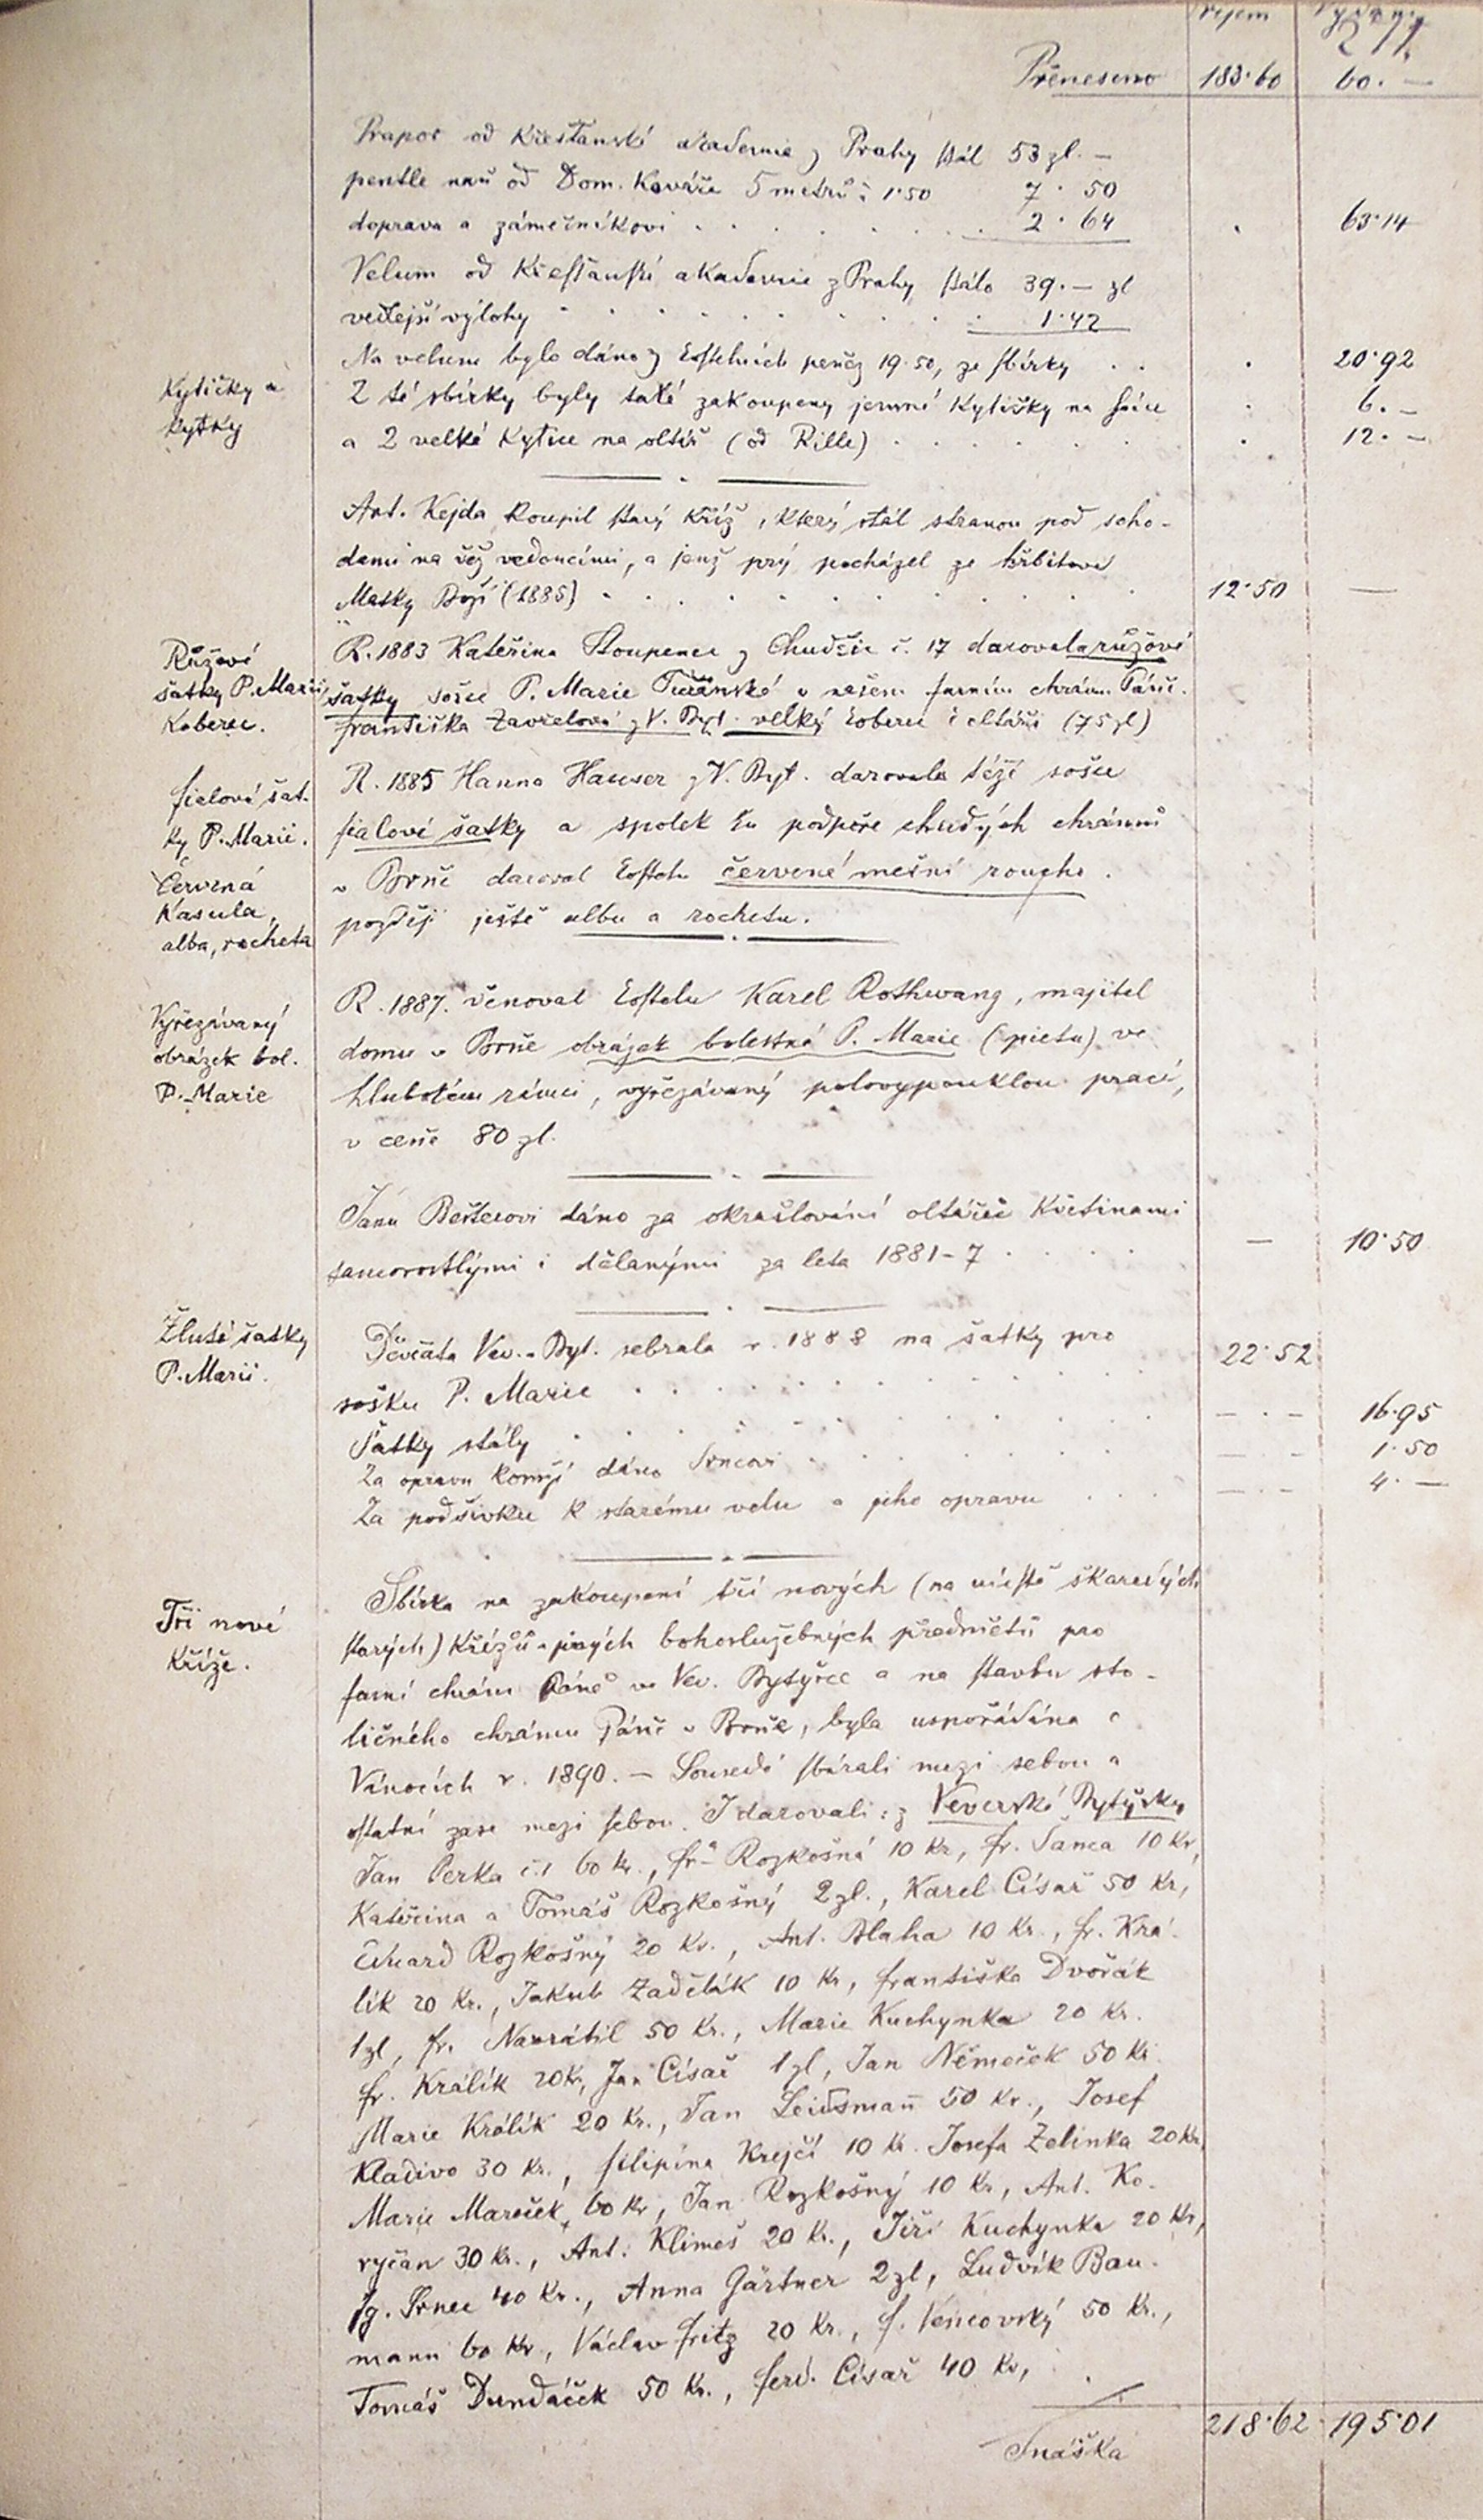 Příjem Vydání
211.
Přeneseno 183·60 60.—
Prapor od Křesťanské akademie z Prahy stál 53 zl.—
pentle naň od Dom. Kováře 5 metrů à 1·50 7·50
doprava a zámečníkovi . . . . . . . 2·64 . 63·14
Velum od Křesťanské akademie z Prahy stálo 39.— zl
vedlejší výlohy . . . . . . . . 1·42
Na velum bylo dáno z kostelních peněz 19·50, ze sbírky . . . 20·92
Kytičky a
kytky
Z té sbírky byly také zakoupeny jemné kytičky na svíce . 6.—
a 2 velké kytice na oltář (od Rille) . . . . . . 12.—
Ant. Kejda koupil starý kříž, který stál stranou pod scho-
dami na věž vedoucími, a jenž prý pocházel ze hřbitova
Matky Boží (1885) . . . . . . . . . . 12·50 —
Růžové
šatky P. Marii,
Koberec.
R. 1883 Kateřina Stoupenec z Chudčic č. 17 darovala růžové
šatky sošce P. Marie Tuřanské v našem farním chrámu Páně.
Františka Zavřelová z V. Byt. velký koberec k oltáři (75 zl)
fialové šat-
ky P. Marii.
Červená
Kasula,
alba, rocheta
R. 1885 Hanna Hauser z V. Byt. darovala téže sošce
fialové šatky a spolek ku podpoře chudých chrámů
v Brně daroval kostelu červené mešní roucho.
později ještě albu a rochetu.
Vyřezávaný
obrázek bol.
P. Marie
R. 1887. věnoval kostelu Karel Rothwang, majitel
domu v Brně obrázek bolestné P. Marie (pietu) ve
hlubokém rámci, vyřezávaný polovypouklou prací,
v ceně 80 zl.
Janu Bešťecovi dáno za okrašlování oltářů květinami
samorostlými i dělanými za leta 1881–7 . . . . — 10·50
Žluté šatky
P. Marii.
Děvčata Vev.-Byt. sebrala r. 1888 na šatky pro
sošku P. Marie . . . . . . . . . . . 22·52
Šatky stály . . . . . . . . . . — . — 16·95
Za opravu komží dáno Srncovi . . . . . . — — 1·50
Za podšívku k starému velu a jeho opravu . . . — . — 4.—
Tři nové
kříže.
Sbírka na zakoupení tří nových (na místě škaredých
starých) křížů a jiných bohoslužebných předmětů pro
farní chrám Páně ve Vev. Bytýšce a na stavbu sto-
ličného chrámu Páně v Brně, byla uspořádána o
Vánocích r. 1890. — Sousedé sbírali mezi sebou a
ostatní zase mezi sebou. I darovali: z Veverské Bytyšky
Jan Perka č.1 60 kr., Fr-a Rozkošná 10 kr, Fr. Šanca 10 kr,
Kateřina a Tomáš Rozkošný 2 zl., Karel Císař 50 kr,
Eduard Rozkošný 20 kr., Ant. Blaha 10 kr., Fr. Krá-
lík 20 kr., Jakub Zadělák 10 kr, Františka Dvořák
1 zl, Fr. Navrátil 50 kr., Marie Kuchynka 20 kr.
Fr. Králík 20 kr, Jan Císař 1 zl, Jan Němeček 50 kr
Marie Králík 20 kr., Jan Leidsmann 50 kr., Josef
Kladivo 30 kr., Filipína Krejčí 10 kr. Josefa Zelinka 20 kr,
Marie Mareček 60 kr, Jan Rozkošný 10 kr, Ant. Ko-
ryčan 30 kr., Ant. Klimeš 20 kr., Jiří Kuchynka 20 kr,
Ig. Srnec 40 kr., Anna Gärtner 2 zl, Ludvík Bau-
mann 60 kr, Václav Fritz 20 kr., F. Vencovský 50 kr.,
Tomáš Dundáček 50 kr., Ferd. Císař 40 kr,
Snáška 218·62 195·01